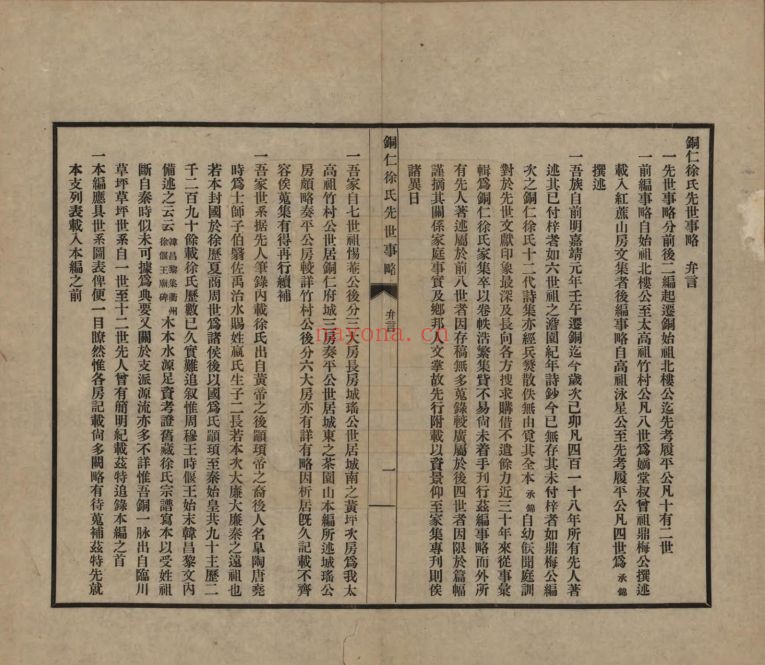 銅仁徐氏先世事略 弁言
一先世事略分前後二編起遷銅始祖北樓公迄先考履平公凡十有二世
一前編事略自始祖北樓公至太高祖竹村公凡八世爲嫡堂叔曾祖鼎梅公撰述
載入紅蕉山房文集者後編事略自高祖泳星公至先考履平公凡四世爲承錦
撰述
一吾族自前明嘉靖元年壬午遷銅迄今歲次己卯凡四百一十八年所有先人著
述其已付梓者如六世祖之澹園紀年詩鈔今已無存其未付梓者如鼎梅公編
次之銅仁徐氏十二代詩集亦經兵燹散佚無由覓其全本承錦自幼飫聞庭訓
對於先世文獻印象最深及長向各方搜求購借不遺餘力近三十年來從事彙
輯爲銅仁徐氏家集卒以卷帙浩繁集貲不易尙未着手刊行茲編事略而外所
有先人著述屬於前八世者因存稿無多蒐錄較廣屬於後四世者因限於篇幅
謹摘其關係家庭事實及鄉邦人文掌故先行附載以資景仰至家集專刊則俟
諸異日
銅仁徐氏先世事略
弁言
一
一吾家自七世祖惕菴公後分三大房長房城瑤公世居城南之黃坪次房爲我太
高祖竹村公世居銅仁府城三房奏平公世居城東之茶園山本編所述城瑤公
房頗略奏平公房較詳竹村公後分六大房亦有詳有略因析居旣久記載不齊
容俟蒐集有得再行續補
一吾家世系据先人筆錄內載徐氏出自黃帝之後顓頊帝之裔後人名臯陶唐堯
時爲士師子伯翳佐禹治水賜姓嬴氏生子二長若本次大廉大廉秦之遠祖也
若本封國於徐歷夏商周世爲諸侯後以國爲氏顓頊至秦始皇共九十主歷二
千二百九十餘載徐氏歷數已久實難追叙惟周穆王時偃王始末韓昌黎文內
備述之云云韓昌黎集衢州徐偃王廟碑木本水源足資考證舊藏徐氏宗譜寫本以受姓祖
斷自秦時似未可據爲典要又關於支派源流亦多不詳惟吾銅一脉出自臨川
草坪草坪世系自一世至十二世先人曾有簡明紀載茲特追錄本編之首
一本編應具世系圖表俾便一目瞭然惟各房記載尙多闕略有待蒐補茲特先就
本支列表載入本編之前
hayona.cn